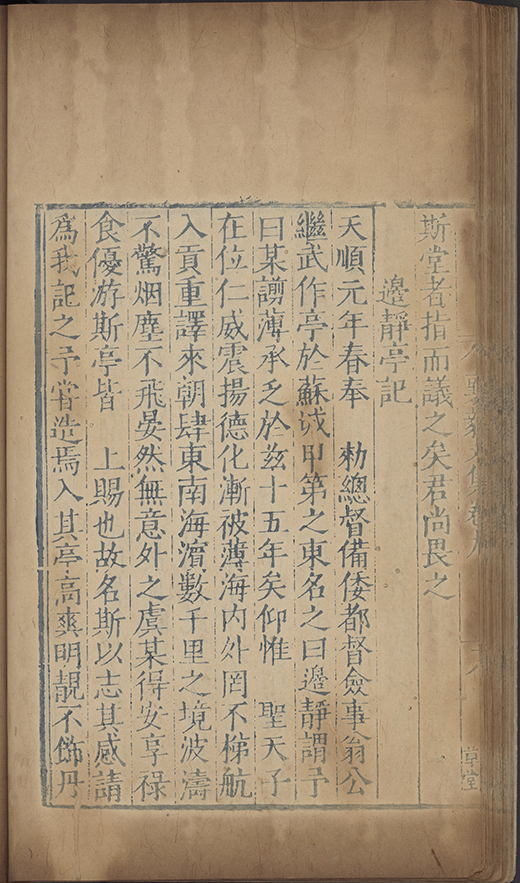 斯堂者指而議之矣君尚畏之
邊靜亭記
天順元年春奉 勑總督備倭都督僉事翁公
繼武作亭於蘇城甲第之東名之曰邊靜謂予
曰某謭薄承乏於兹十五年矣仰惟 聖天子
在位仁威震揚德化漸被薄海内外罔不梯航
入貢重譯來朝肆東南海濵數千里之境波濤
不驚烟塵不飛晏然無意外之虞某得安享禄
食優游斯亭皆 上賜也故名斯以志其感請
為我記之予甞造焉入其亭高爽明靚不飾丹
草堂